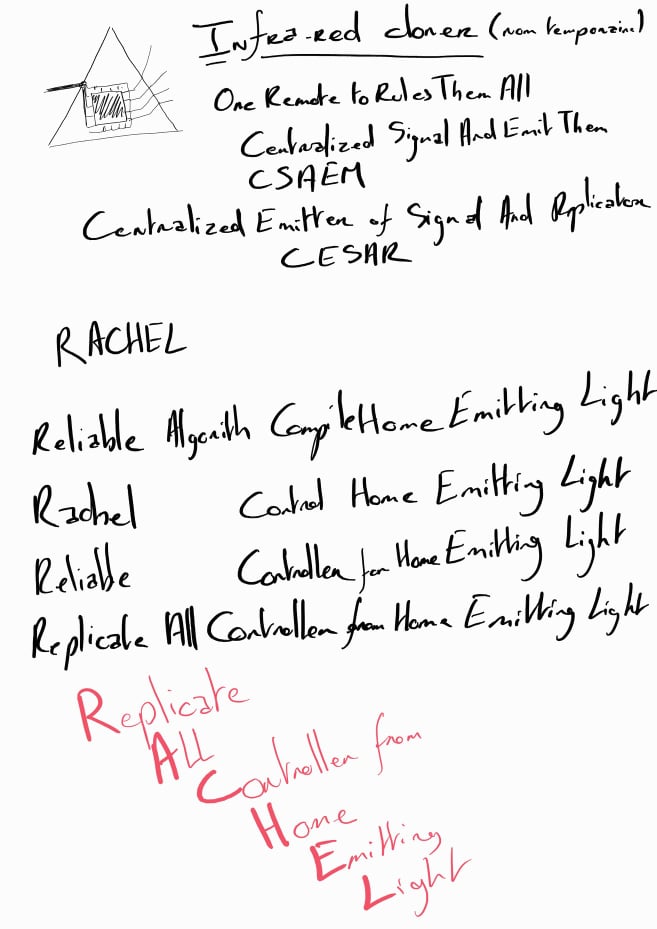 Infra-red cloner (nom temporaire)
One Remote to Rules Them All
Centralized Signal And Emit Them
CSAEM
Centralized Emitter of Signal And Replication
CESAR
RACHEL
Reliable Algorith Compile Home Emitting Light
Rachel Control Home Emitting Light
Reliable Controller for Home Emitting Light
Replicate All Controller from Home Emitting Light
Replicate
All
Controller from
Home
Emitting
Light